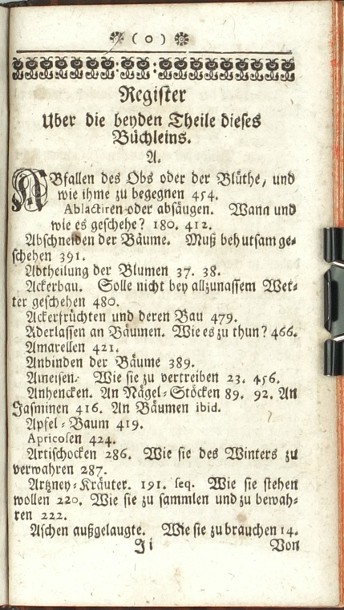 ( 0 )
Register
Uber die beyden Theile dieses
Büchleins.
A.
ABfallen des Obs oder der Blüthe, und
wie ihme zu begegnen 454.
Ablactiren oder absäugen. Wann und
wie es geschehe? 180. 412.
Abschneiden der Bäume. Muß behutsam ge-
schehen 391.
Abtheilung der Blumen 37. 38.
Ackerbau. Solle nicht bey allzunassem Wet-
ter geschehen 480.
Ackerfrüchten und deren Bau 479.
Aderlassen an Bäumen. Wie es zu thun? 466.
Amarellen 421.
Anbinden der Bäume 389.
Ameisen. Wie sie zu vertreiben 23. 456.
Anhencken. An Nägel-Stöcken 89. 92. An
Jasminen 416. An Bäumen ibid.
Apfel-Baum 419.
Apricosen 424.
Artischocken 286. Wie sie des Winters zu
verwahren 287.
Artzney-Kräuter. 191. seq. Wie sie stehen
wollen 220. Wie sie zu sammlen und zu bewah-
ren 222.
Aschen außgelaugte. Wie sie zu brauchen 14.
Ii Von